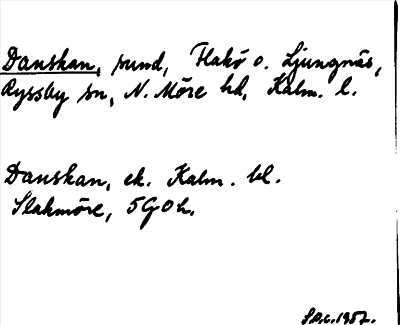 Danskan, sund, Flakö o. Ljungnäs,
Ryssby sn, N. Möre hd, Kalm. l.
Danskan, ek. Kalm. bl.
Slakmöre, 5G0h.